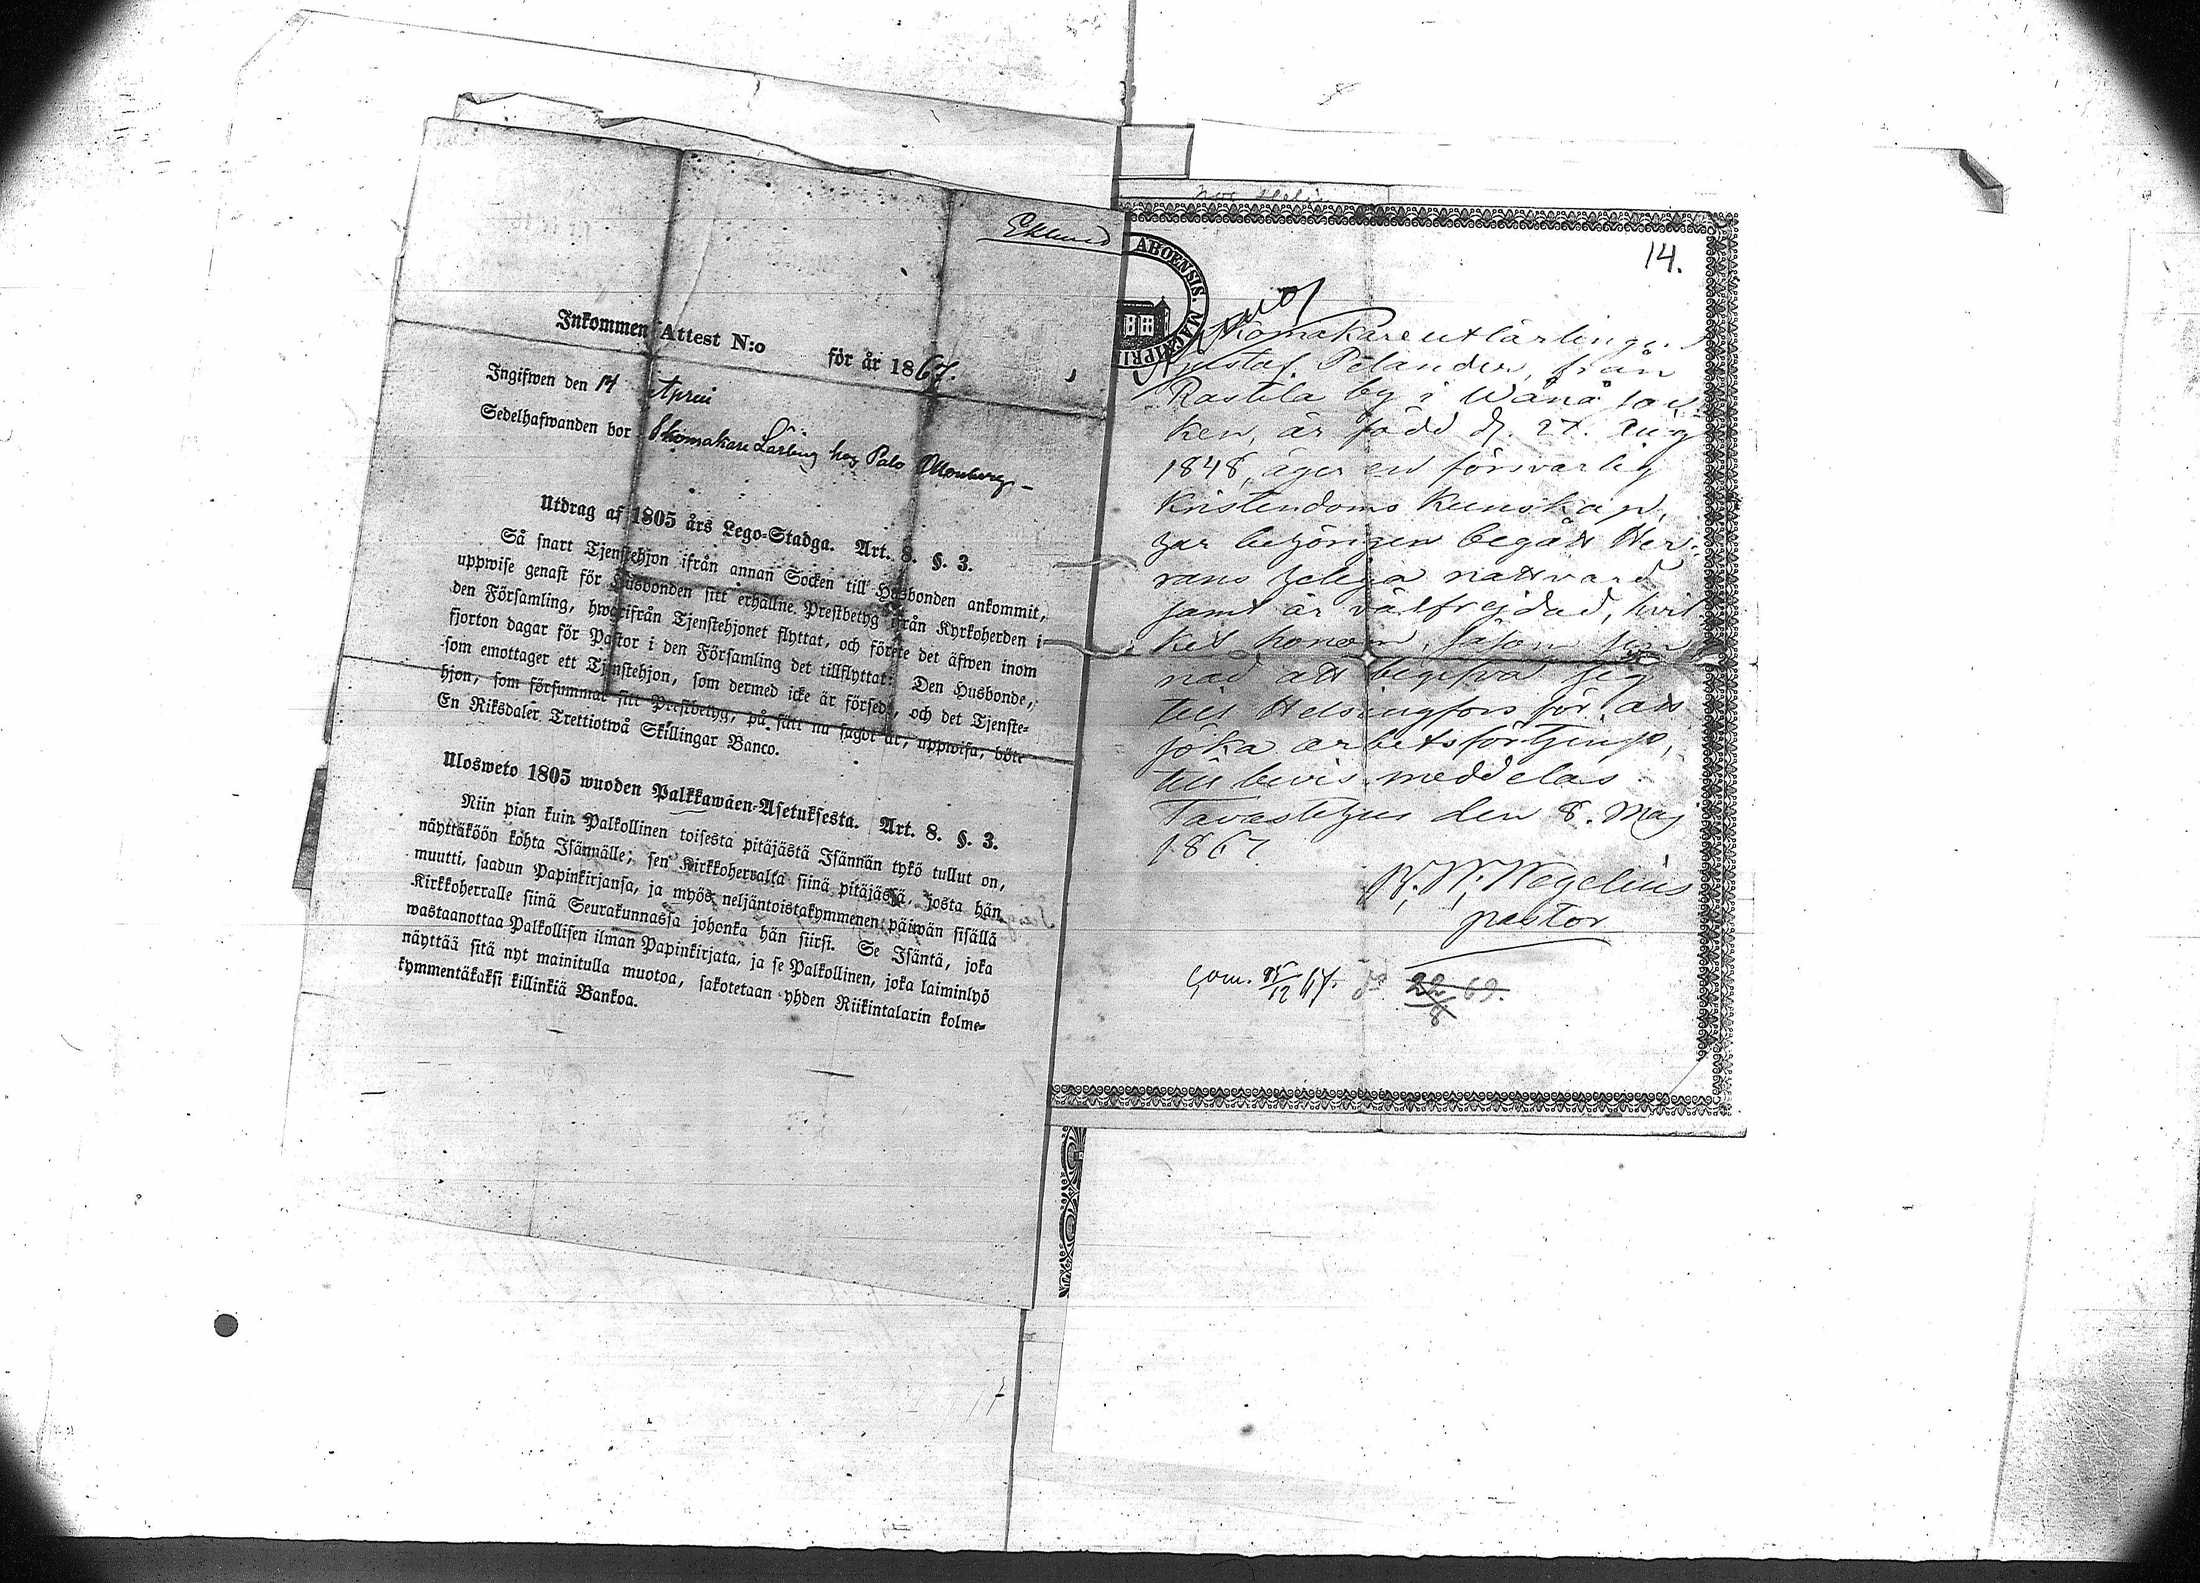 Eklund
Inkommen Attest N:o för år 1867.
Ingifwen den 14 April
Sedelhafwanden bor Skomakare Lärling hos Palo
Utdrag af 1805 års Lego-Stadga. Art. 8. §. 3.
Så snart Tjenstehjon ifrån annan Socken till Husbonden ankommit,
uppwise genast för Husbonden sitt erhållne Prestbetyg ifrån Kyrkoherden i
den Församling, hwarifrån Tjenstehjonet flyttat, och förete det äfwen inom
fjorton dagar för Pastor i den Församling det tillflyttat: Den Husbonde,
som emottager ett Tjenstehjon, som dermed icke är försedt, och det Tjenste-
hjon, som försummar sitt Prestbetyg, på sätt nu sagdt är, uppwisa, böte
En Riksdaler Trettiotwå Skillingar Banco.
Ulosweto 1805 wuoden Palkkawäen-Asetuksesta. Art. 8. §. 3.
Niin pian kuin Palkollinen toisesta pitäjästä Isännän tykö tullut on,
näyttäköön kohta Isännälle; sen Kirkkoherralta siinä pitäjässä, josta hän
muutti, saadun Papinkirjansa, ja myös neljäntoistakymmenen päiwän sisällä
Kirkkoherralle siinä Seurakunnassa johonka hän siirsi. Se Isäntä, joka
wastaanottaa Palkollisen ilman Papinkirjata, ja se Palkollinen, joka laiminlyö
näyttää sitä nyt mainitulla muotoa, sakotetaan yhden Riikintalarin kolme-
kymmentäkaksi killinkiä Bankoa.
14.
ABOENSIS. MAG. PRIN
Skomakareutlärlingen
Gustaf Pelander, från
Rastila by i Wånå soc-
ken, är född d. 27. Aug
1848, äger en försvarlig
Kristendoms Kunskap,
har behörigen begått Her-
rans helga nattvard
samt är välfrejdad, hvil
ket honom, såsom
nad att begifva sig
till Helsingfors för att
söka arbetsförtjenst,
till bevis meddelas
Tavastehus den 8. Maj
1867
Wegelius
pastor
com. 25/12 67. do 22/8 69.